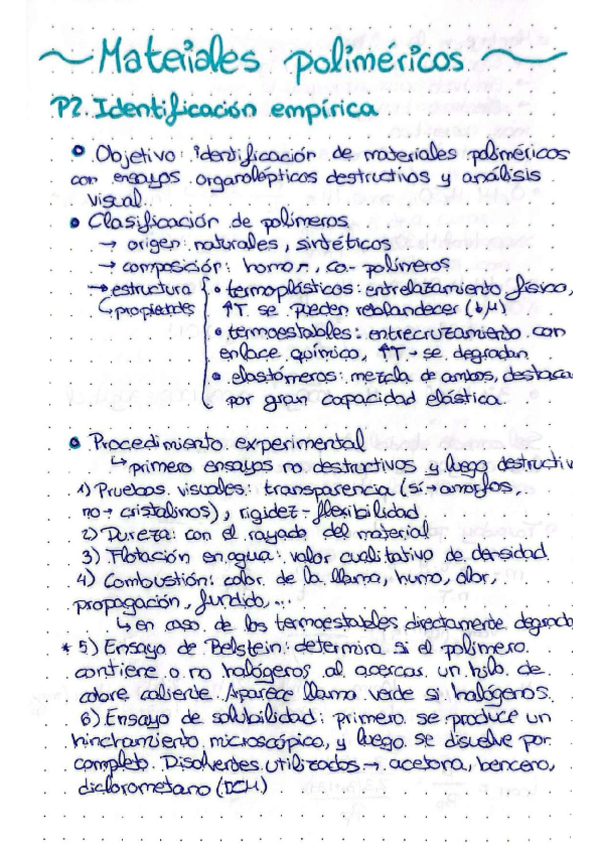 ~ Materiales poliméricos ~
P2. Identificación empírica
• Objetivo: identificación de materiales poliméricos
con ensayos organolépticos destructivos y análisis
visual.
• Clasificación de polímeros
→ origen: naturales, sintéticos
→ composición: homo-, co- polímeros
→ estructura { • termoplásticos: entrelazamiento físico,
↳ propiedades ↑T se pueden reblandecer (↓μ)
• termoestables: entrecruzamiento con
enlace químico, ↑T → se degradan
• elastómeros: mezcla de ambos, destaca
por gran capacidad elástica.
• Procedimiento experimental
↳ primero ensayos no destructivos y luego destructiv
1) Pruebas visuales: transparencia (sí → amorfos,
no → cristalinos), rigidez - flexibilidad
2) Dureza: con el rayado del material
3) Flotación en agua: valor cualitativo de densidad
4) Combustión: color de la llama, humo, olor,
propagación, fundido, ...
↳ en caso de los termoestables directamente degrada
* 5) Ensayo de Belstein: determina si el polímero
contiene o no halógenos al acercar un hilo de
cobre caliente. Aparece llama verde si halógenos.
6) Ensayo de solubilidad: primero se produce un
hinchamiento microscópico, y luego se disuelve por
completo. Disolventes utilizados → acetona, benceno,
diclorometano (DCM)